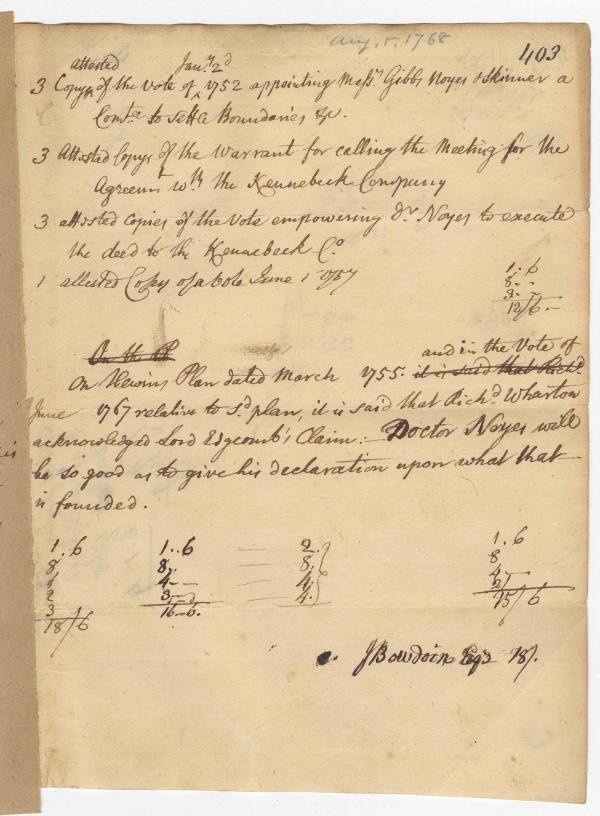 Aug. 5, 1768
403
attested Jany 2d
3 Copys of the Vote of 1752 appointing Messrs Gibbs Noyes & Skinner a
Comtee to settle Boundaries &c.
3 Attested Copys of the Warrant for calling the Meeting for the
Agreemt wth the Kennebeck Company
3 attested Copies of the Vote empowering Dr Noyes to execute
the deed to the Kennebeck Co
1 attested Copy of a Vote June 1757
1. 6
8. -
3. -
12/6. -
On the
and in the Vote of
On Plan dated March 1755. it is said that Richd
June 1767 relative to sd plan, it is said that Richd Wharton
acknowledged Lord Edgcomb's Claim: — Doctor Noyes will
be so good as to give his declaration upon what that
is founded.
1. 6 1. . 6 2. 1. 6
8 8. 8. 8
4 - - 4. 4 -
2 3 4.
3 16 - 6. 15/6
18/6
J Bowdoin Esqr 18/.